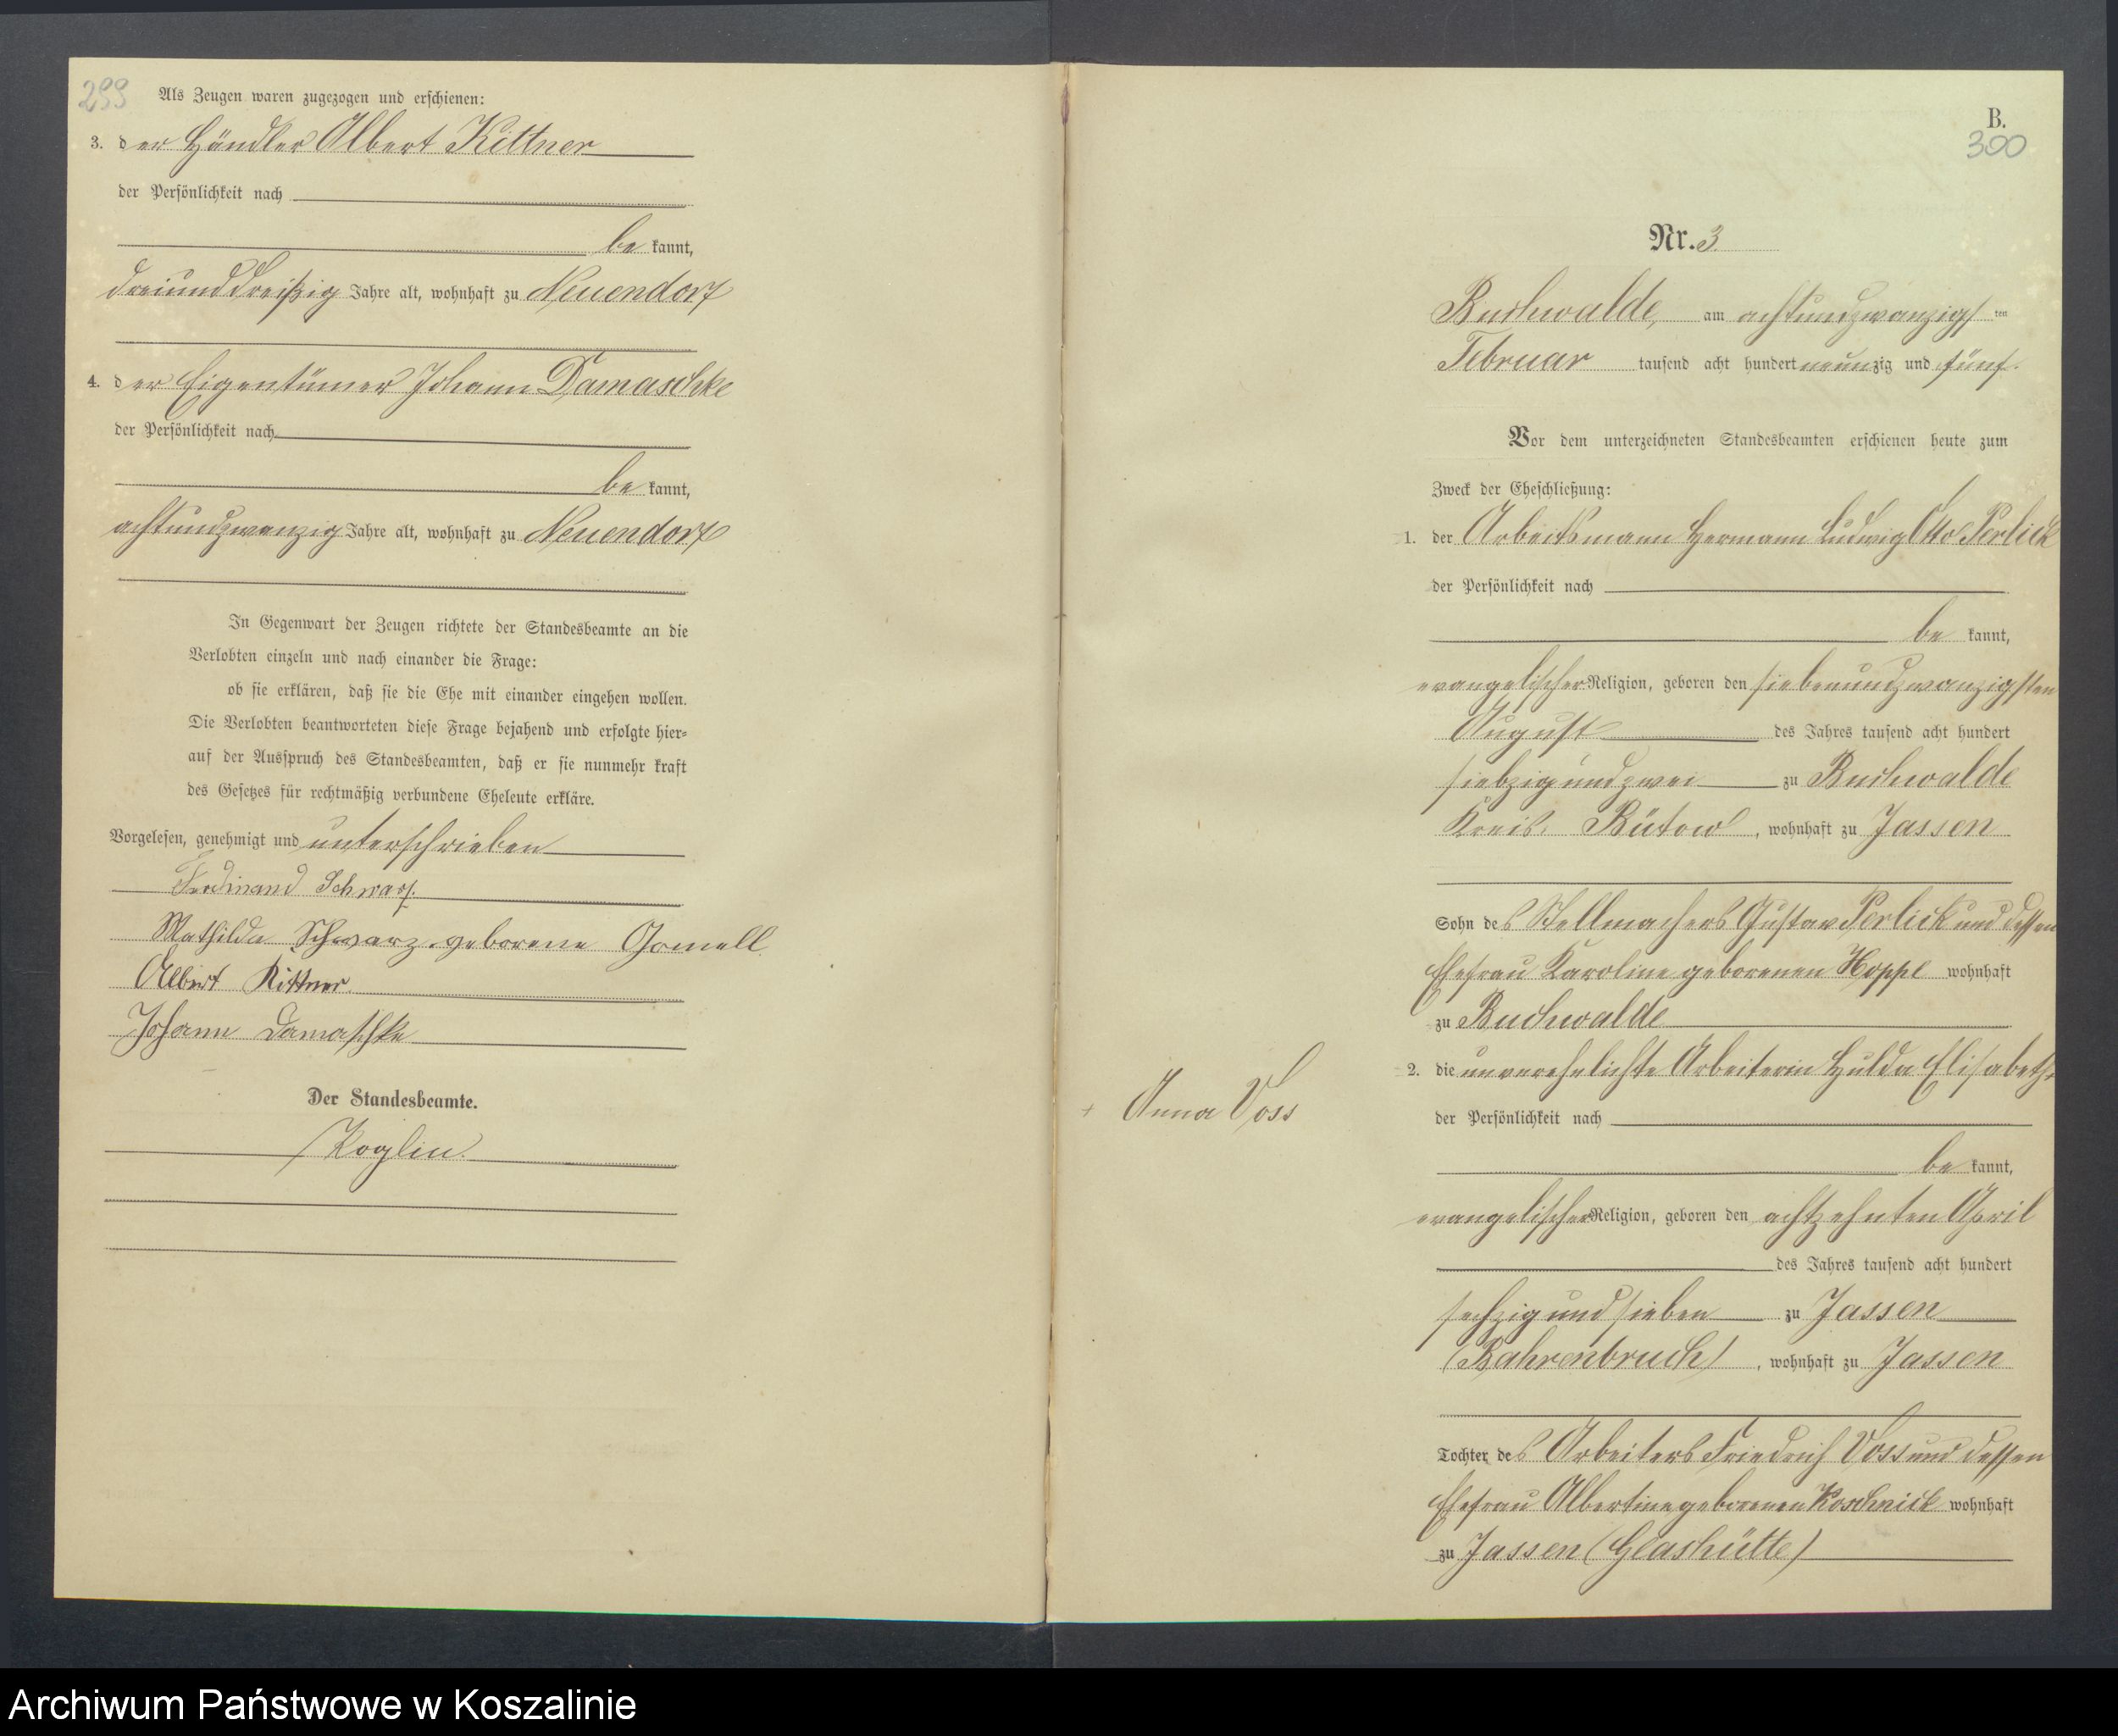 299
Als Zeugen waren zugezogen und erschienen:
3. der Händler Albert Kittner
der Persönlichkeit nach
be kannt,
dreiunddreißig Jahre alt, wohnhaft zu Neuendorf
4. der Eigentümer Johann Damaschke
der Persönlichkeit nach
be kannt,
achtundzwanzig Jahre alt, wohnhaft zu Neuendorf
In Gegenwart der Zeugen richtete der Standesbeamte an die
Verlobten einzeln und nach einander die Frage:
ob sie erklären, daß sie die Ehe mit einander eingehen wollen.
Die Verlobten beantworteten diese Frage bejahend und erfolgte hier-
auf der Ausspruch des Standesbeamten, daß er sie nunmehr kraft
des Gesetzes für rechtmäßig verbundene Eheleute erkläre.
Vorgelesen, genehmigt und unterschrieben
Ferdinand Schwarz.
Mathilda Schwarz geborene Gomell.
Albert Kittner.
Johann Damaschke
Der Standesbeamte.
Koglin.
B.
300
Nr. 3
Buchwalde, am achtundzwanzigsten
Februar tausend acht hundert neunzig und fünf.
Vor dem unterzeichneten Standesbeamten erschienen heute zum
Zweck der Eheschließung:
1. der Arbeitsmann Hermann Ludwig Otto Perlick
der Persönlichkeit nach
be kannt,
evangelischer Religion, geboren den siebenundzwanzigsten
August des Jahres tausend acht hundert
siebzig und zwei zu Buchwalde
Kreis Bütow, wohnhaft zu Jassen
Sohn des Stellmachers Gustav Perlick und dessen
Ehefrau Karoline geborenen Hoppe wohnhaft
zu Buchwalde
2. die unverehelichte Arbeiterin Hulda Elisabeth
+ Anna Voss
der Persönlichkeit nach
be kannt,
evangelischer Religion, geboren den achtzehnten April
des Jahres tausend acht hundert
sechzig und sieben zu Jassen
(Bahrenbruch), wohnhaft zu Jassen
Tochter des Arbeiters Friedrich Voss und dessen
Ehefrau Albertine geborenen Koschnick wohnhaft
zu Jassen (Glashütte)
Archiwum Państwowe w Koszalinie